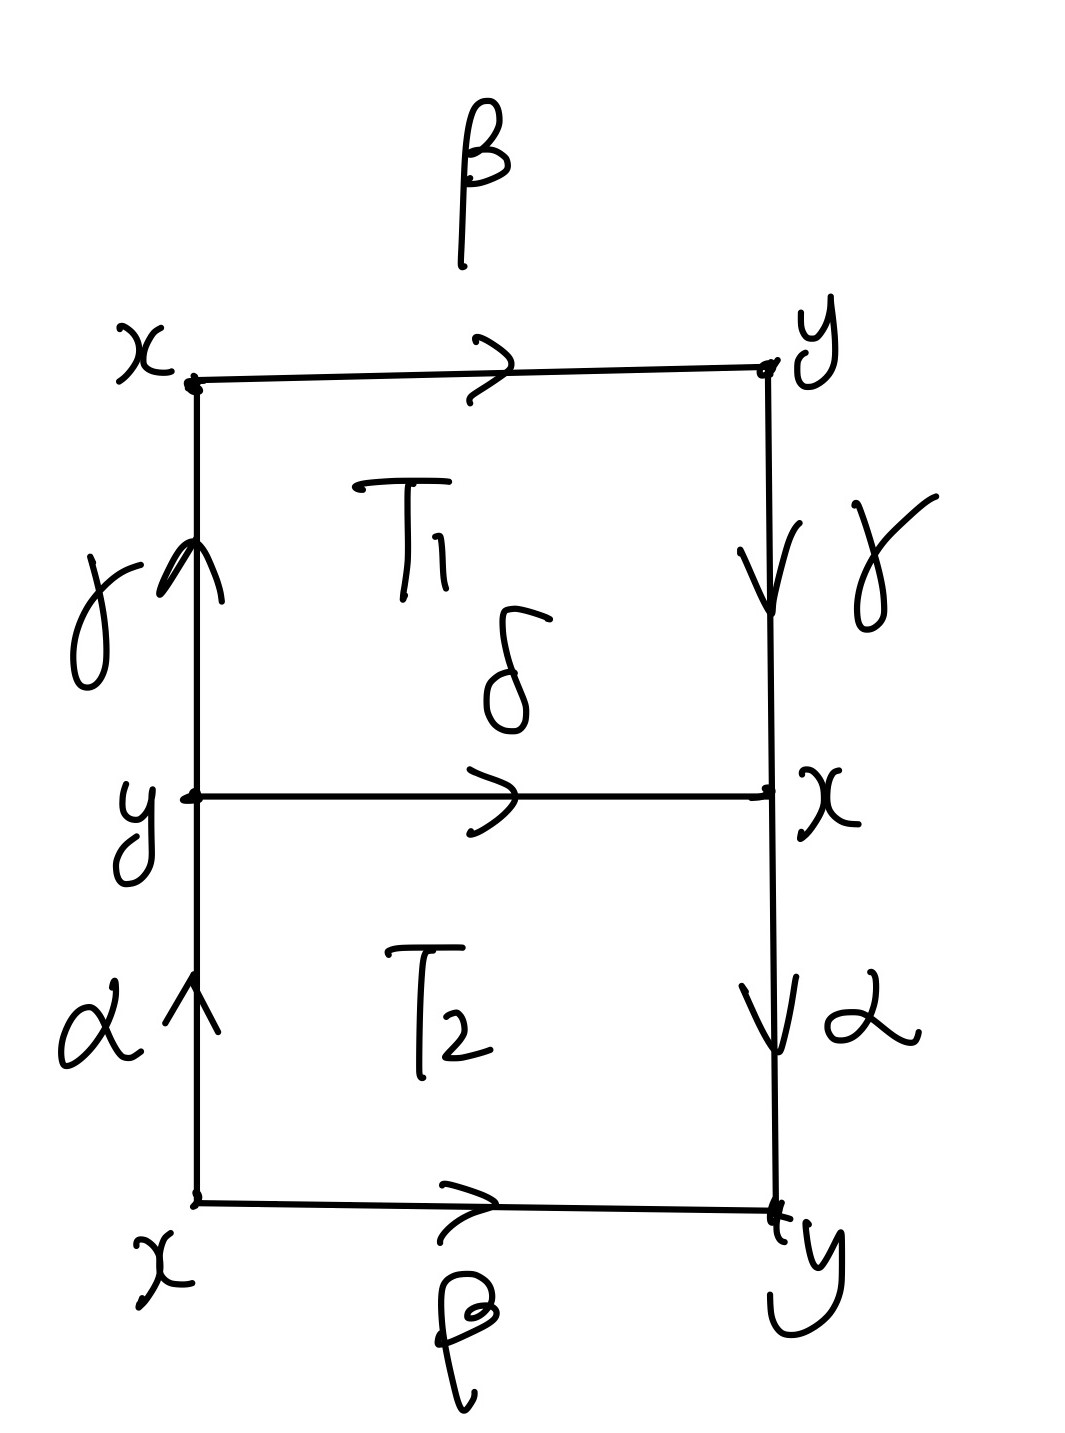 β
x y
T₁
γ γ
δ
y x
T₂
α α
x y
β